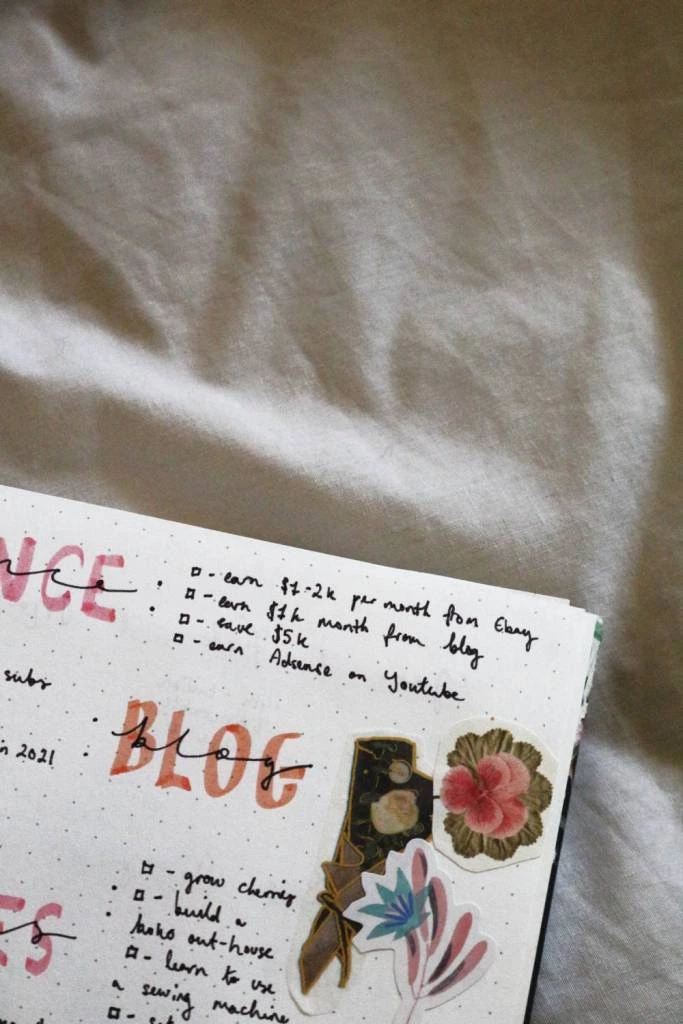 NCE
nce
- earn $1-2k per month from Ebay
- earn $1k month from blog
- save $5k
- earn Adsense on Youtube
subs
BLOG
blog
in 2021
- grow cherries
- build a
out-house
ES
s
- learn to use
a sewing machine